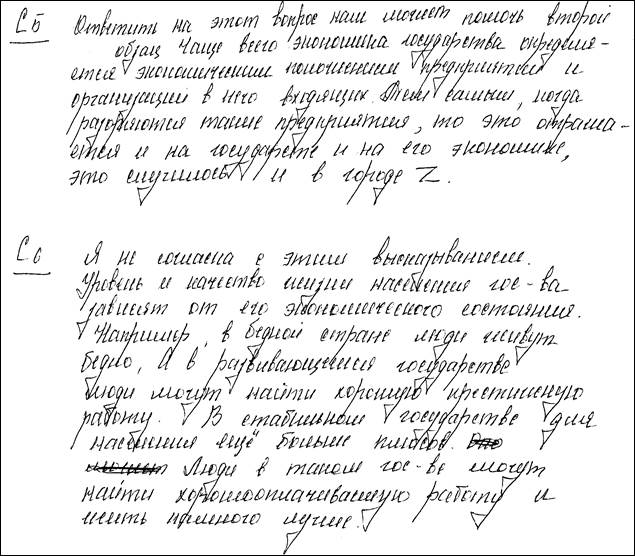 С5 Ответить на этот вопрос нам может помочь второй
абзац Чаще всего экономика государства определя-
ется экономическим положением предприятий и
организаций в него входящих. Тем самым, когда
разоряются такие предприятия, то это отража-
ется и на государстве и на его экономике,
это случилось и в городе Z.
С6 Я не согласна с этим высказыванием.
Уровень и качество жизни населения гос-ва
зависят от его экономического состояния.
Например, в бедной стране люди живут
бедно, А в развивающемся государстве
люди могут найти хорошую престижную
работу. В стабильном государстве для
населения ещё больше плюсов.
Люди в таком гос-ве могут
найти хорошооплачиваемую работу и
жить намного лучше.